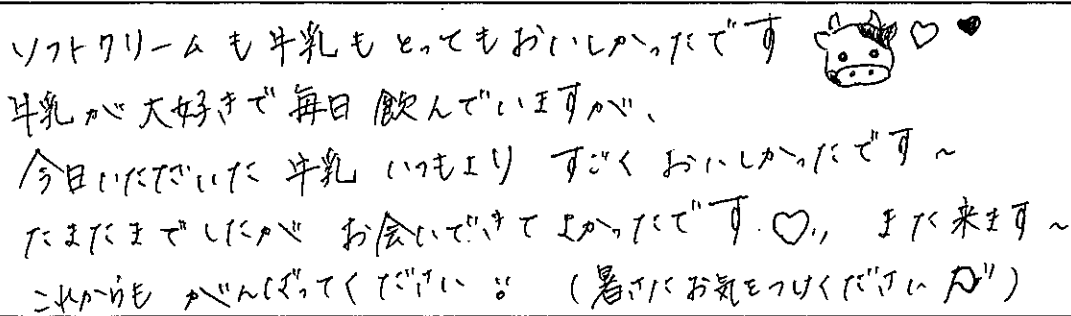 ソフトクリームも牛乳もとってもおいしかったです ♡ ♥
牛乳が大好きで毎日飲んでいますが、
今日いただいた牛乳いつもよりすごくおいしかったです~
たまたまでしたがお会いできてよかったです♡,, また来ます~
これからもがんばってください (暑さにお気をつけください)